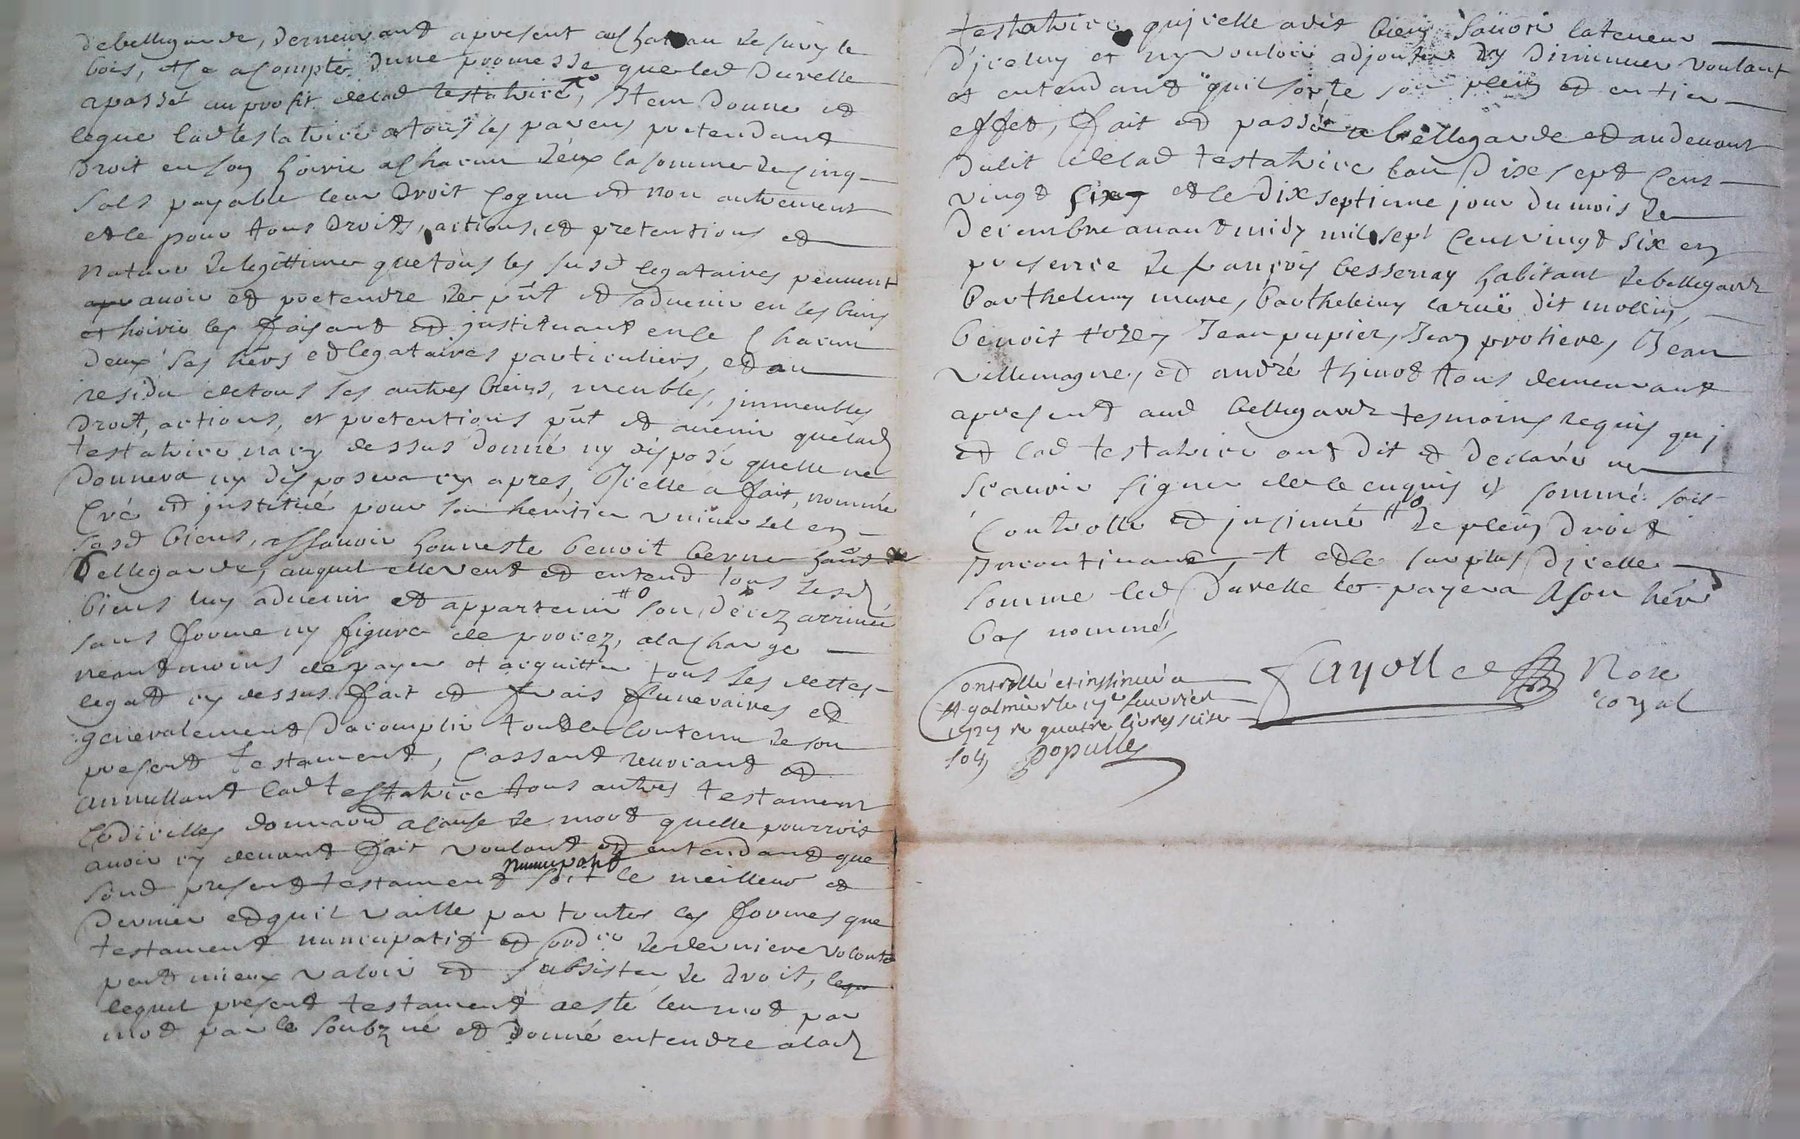 debellegarde, demeurant apresent au chateau de sury le
bois, et ce acompte dune promesse que led Durelle
apassé au profit delad testatrice, Item donne et
legue lad testatrice atous les parens pretendant
droit en son hoirie achacun deux la somme de cinq
sols payable leur droit cognu et non autrement
et ce pour tous droits, actions, et pretentions et
nature de legittime que tous les susd legataires peuvent
avoir et pretendre de pnt et aduenir en ses biens
et hoirie les faisant et instituant en ce chacun
deux ses hers et legataires particuliers, et au
residu de tous ses autres biens, meubles, jmmeubles
droit, actions, et pretentions pnt et auenir que lad
testatrice na cy dessus donné ny disposé quelle ne
donnera ny disposera cy apres, Jcelle a fait, nommé
créé et jnstitué pour son heritier vniuersel en
sesd biens, assauoir honneste benoit berne hant de
bellegarde, auquel elle veut et entend tous sesd
biens luy aduenir et appartenir son décez arrivée
sans forme ny figure de procez, alacharge
neantmoins de payer et acquitter tous ses dettes
legat cy dessus fait et frais funeraires et
generalement dacomplir tout le contenu de son
present testament, cassant reuocant et
annullant lad testatrice tous autres testament
codicilles donnaõn acause de mort quelle pourroit
auoir cy deuant fait voulant et entendant que
sond present testament nuncupatif soit le meilleur et
dernier et quil vaille par toutes les formes que
testament nuncupatif et ordre de derniere volonté
peut mieux valoir et subsister de droit, lequ
lequel present testament aesté leu mot par
mot par le soubz né et donné entendre alad
testatrice qujcelle adit bien sauoir lateneur
djceluy et ny vouloir adjouter ny diminuer voulant
et entendant quil sorte son plein et entier
effet, fait et passé a bellegarde et audeuant
dulit delad testatrice lan dix sept cens
vingt six et le dix septieme jour du mois de
decembre auant midy mil sept cent vingt six en
presence de françois bessenay habitant de bellegarde
barthelemy mure, barthelemy larue dit mollin,
benoit Jean pupier, Jean protiere, Jean
villemagne, et andré thinot tous demeurant
apresent aud bellegarde tesmoins requis quj
et lad testatrice ont dit et declaré ne
sçauoir signer de ce enquis et sommé soit
controllé et jnsinué de plein droit
Incontinant, et le surplus djcelle
somme led Durelle le payera a son her
bas nommé,
Controllé et jnsinué a
St galmier le fevrier
1727 r quatre livres seize
sols Populle
Fayolle Nore
royal